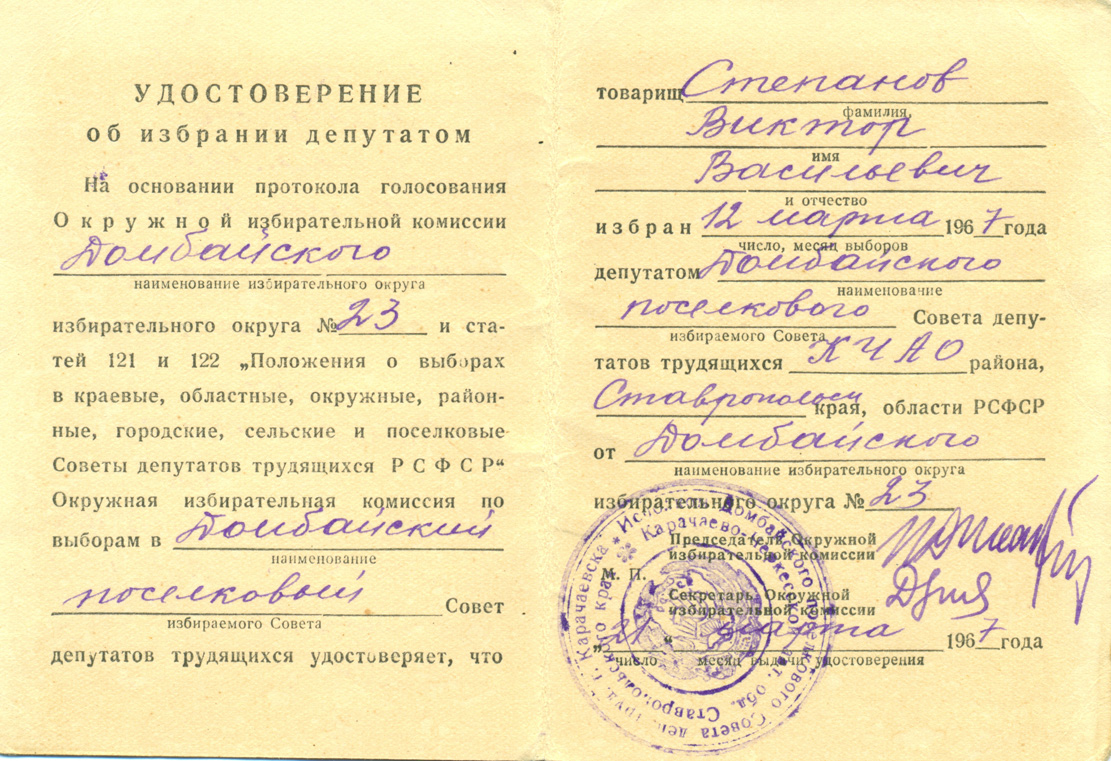 УДОСТОВЕРЕНИЕ
об избрании депутатом
На основании протокола голосования
Окружной избирательной комиссии
Домбайского
наименование избирательного округа
избирательного округа № 23 и ста-
тей 121 и 122 „Положения о выборах
в краевые, областные, окружные, район-
ные, городские, сельские и поселковые
Советы депутатов трудящихся РСФСР“
Окружная избирательная комиссия по
выборам в Домбайский
наименование
поселковый Совет
избираемого Совета
депутатов трудящихся удостоверяет, что
товарищ Степанов
фамилия,
Виктор
имя
Васильевич
и отчество
избран 12 марта 1967 года
число, месяц выборов
депутатом Домбайского
наименование
поселкового Совета депу-
избираемого Совета
татов трудящихся КЧАО района,
края, области РСФСР
от Домбайского
наименование избирательного округа
избирательного округа № 23
Председатель Окружной
избирательной комиссии
М. П.
Секретарь Окружной
избирательной комиссии
„21“ марта 1967 года
число месяц выдачи удостоверения